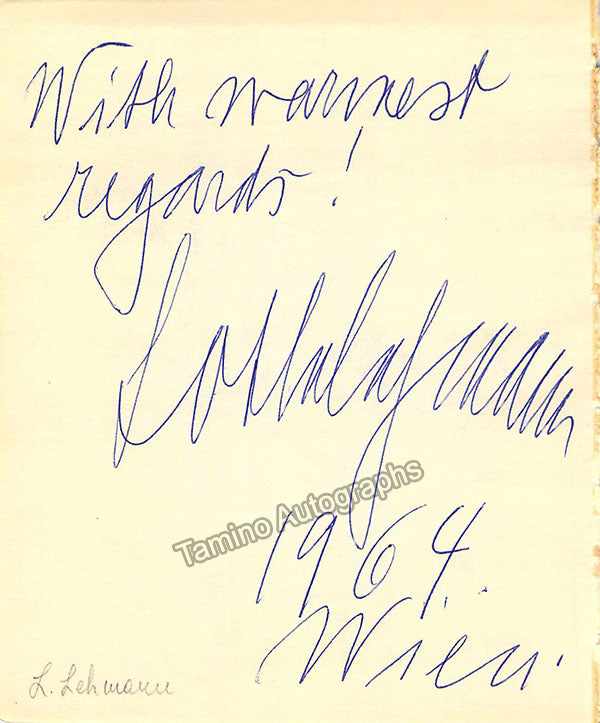 With warmest
regards!
Lotte Lehmann
Tamino Autographs
1964
Wien.
L. Lehmann